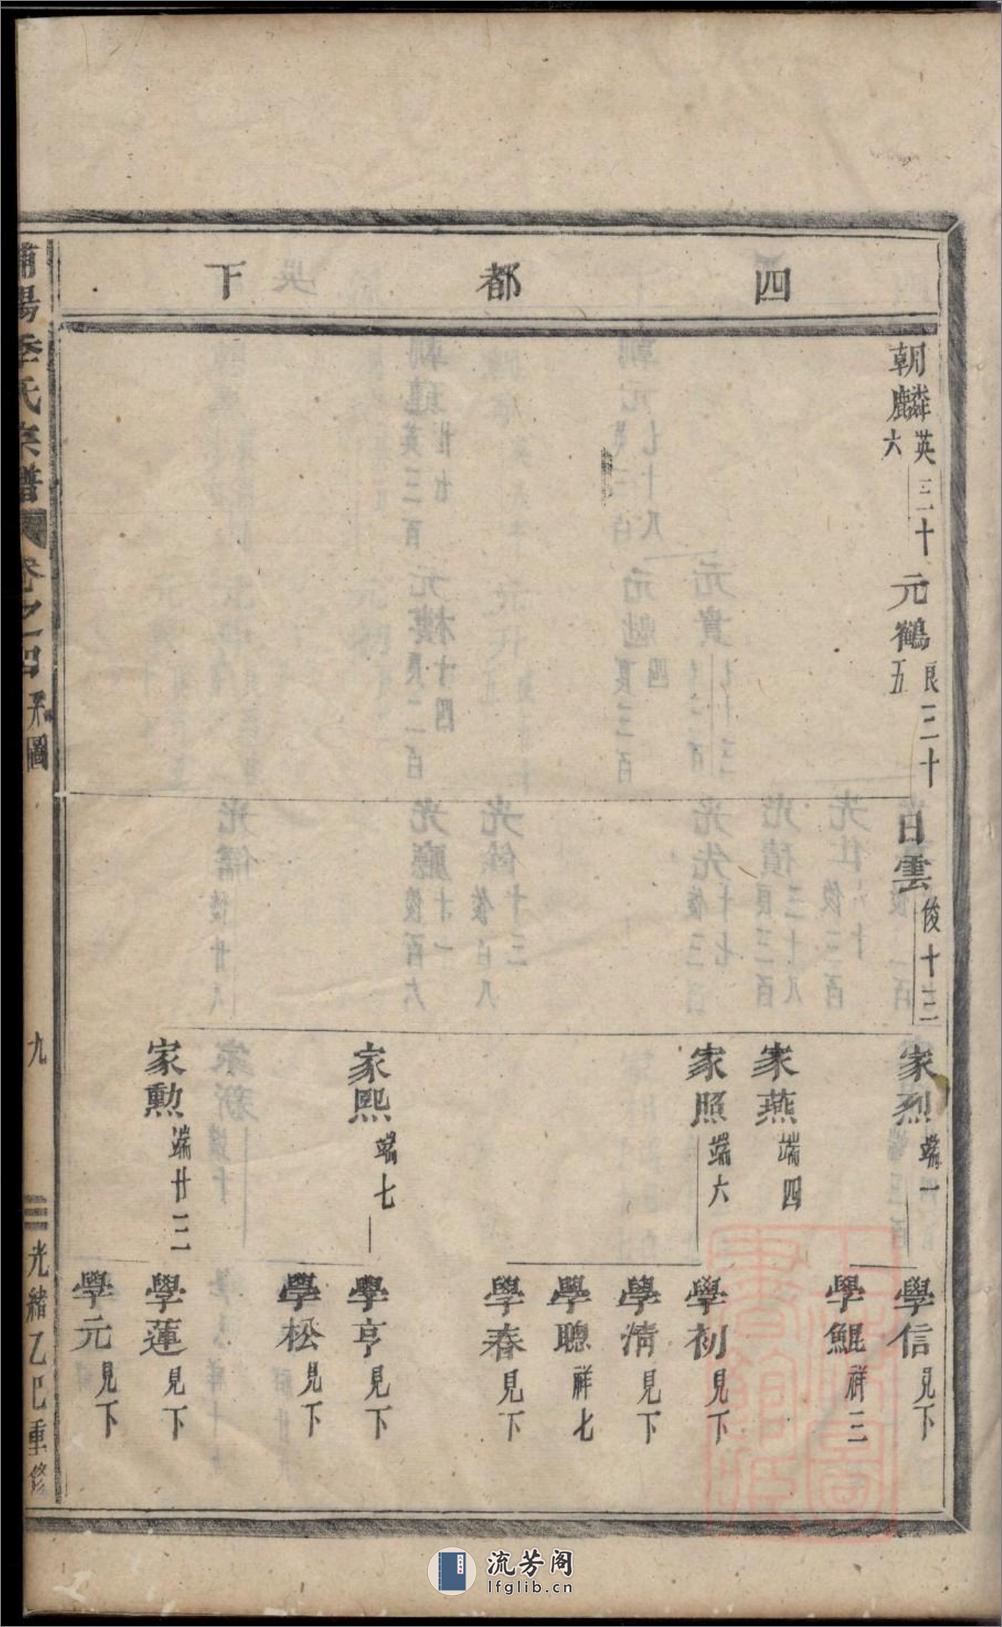 四都下
朝麟 英三十六
元鶴 良三十五
白雲 俊十三
家烈 端一
家燕 端四
家照 端六
家熙 端七
家勲 端廿三
學信 見下
學鯤 祥三
學初 見下
學清 見下
學聰 祥七
學春 見下
學亨 見下
學松 見下
學蓮 見下
學元 見下
浦陽季氏宗譜 卷之四 系圖
九
光緒乙巳重修
流芳阁
lfglib.cn